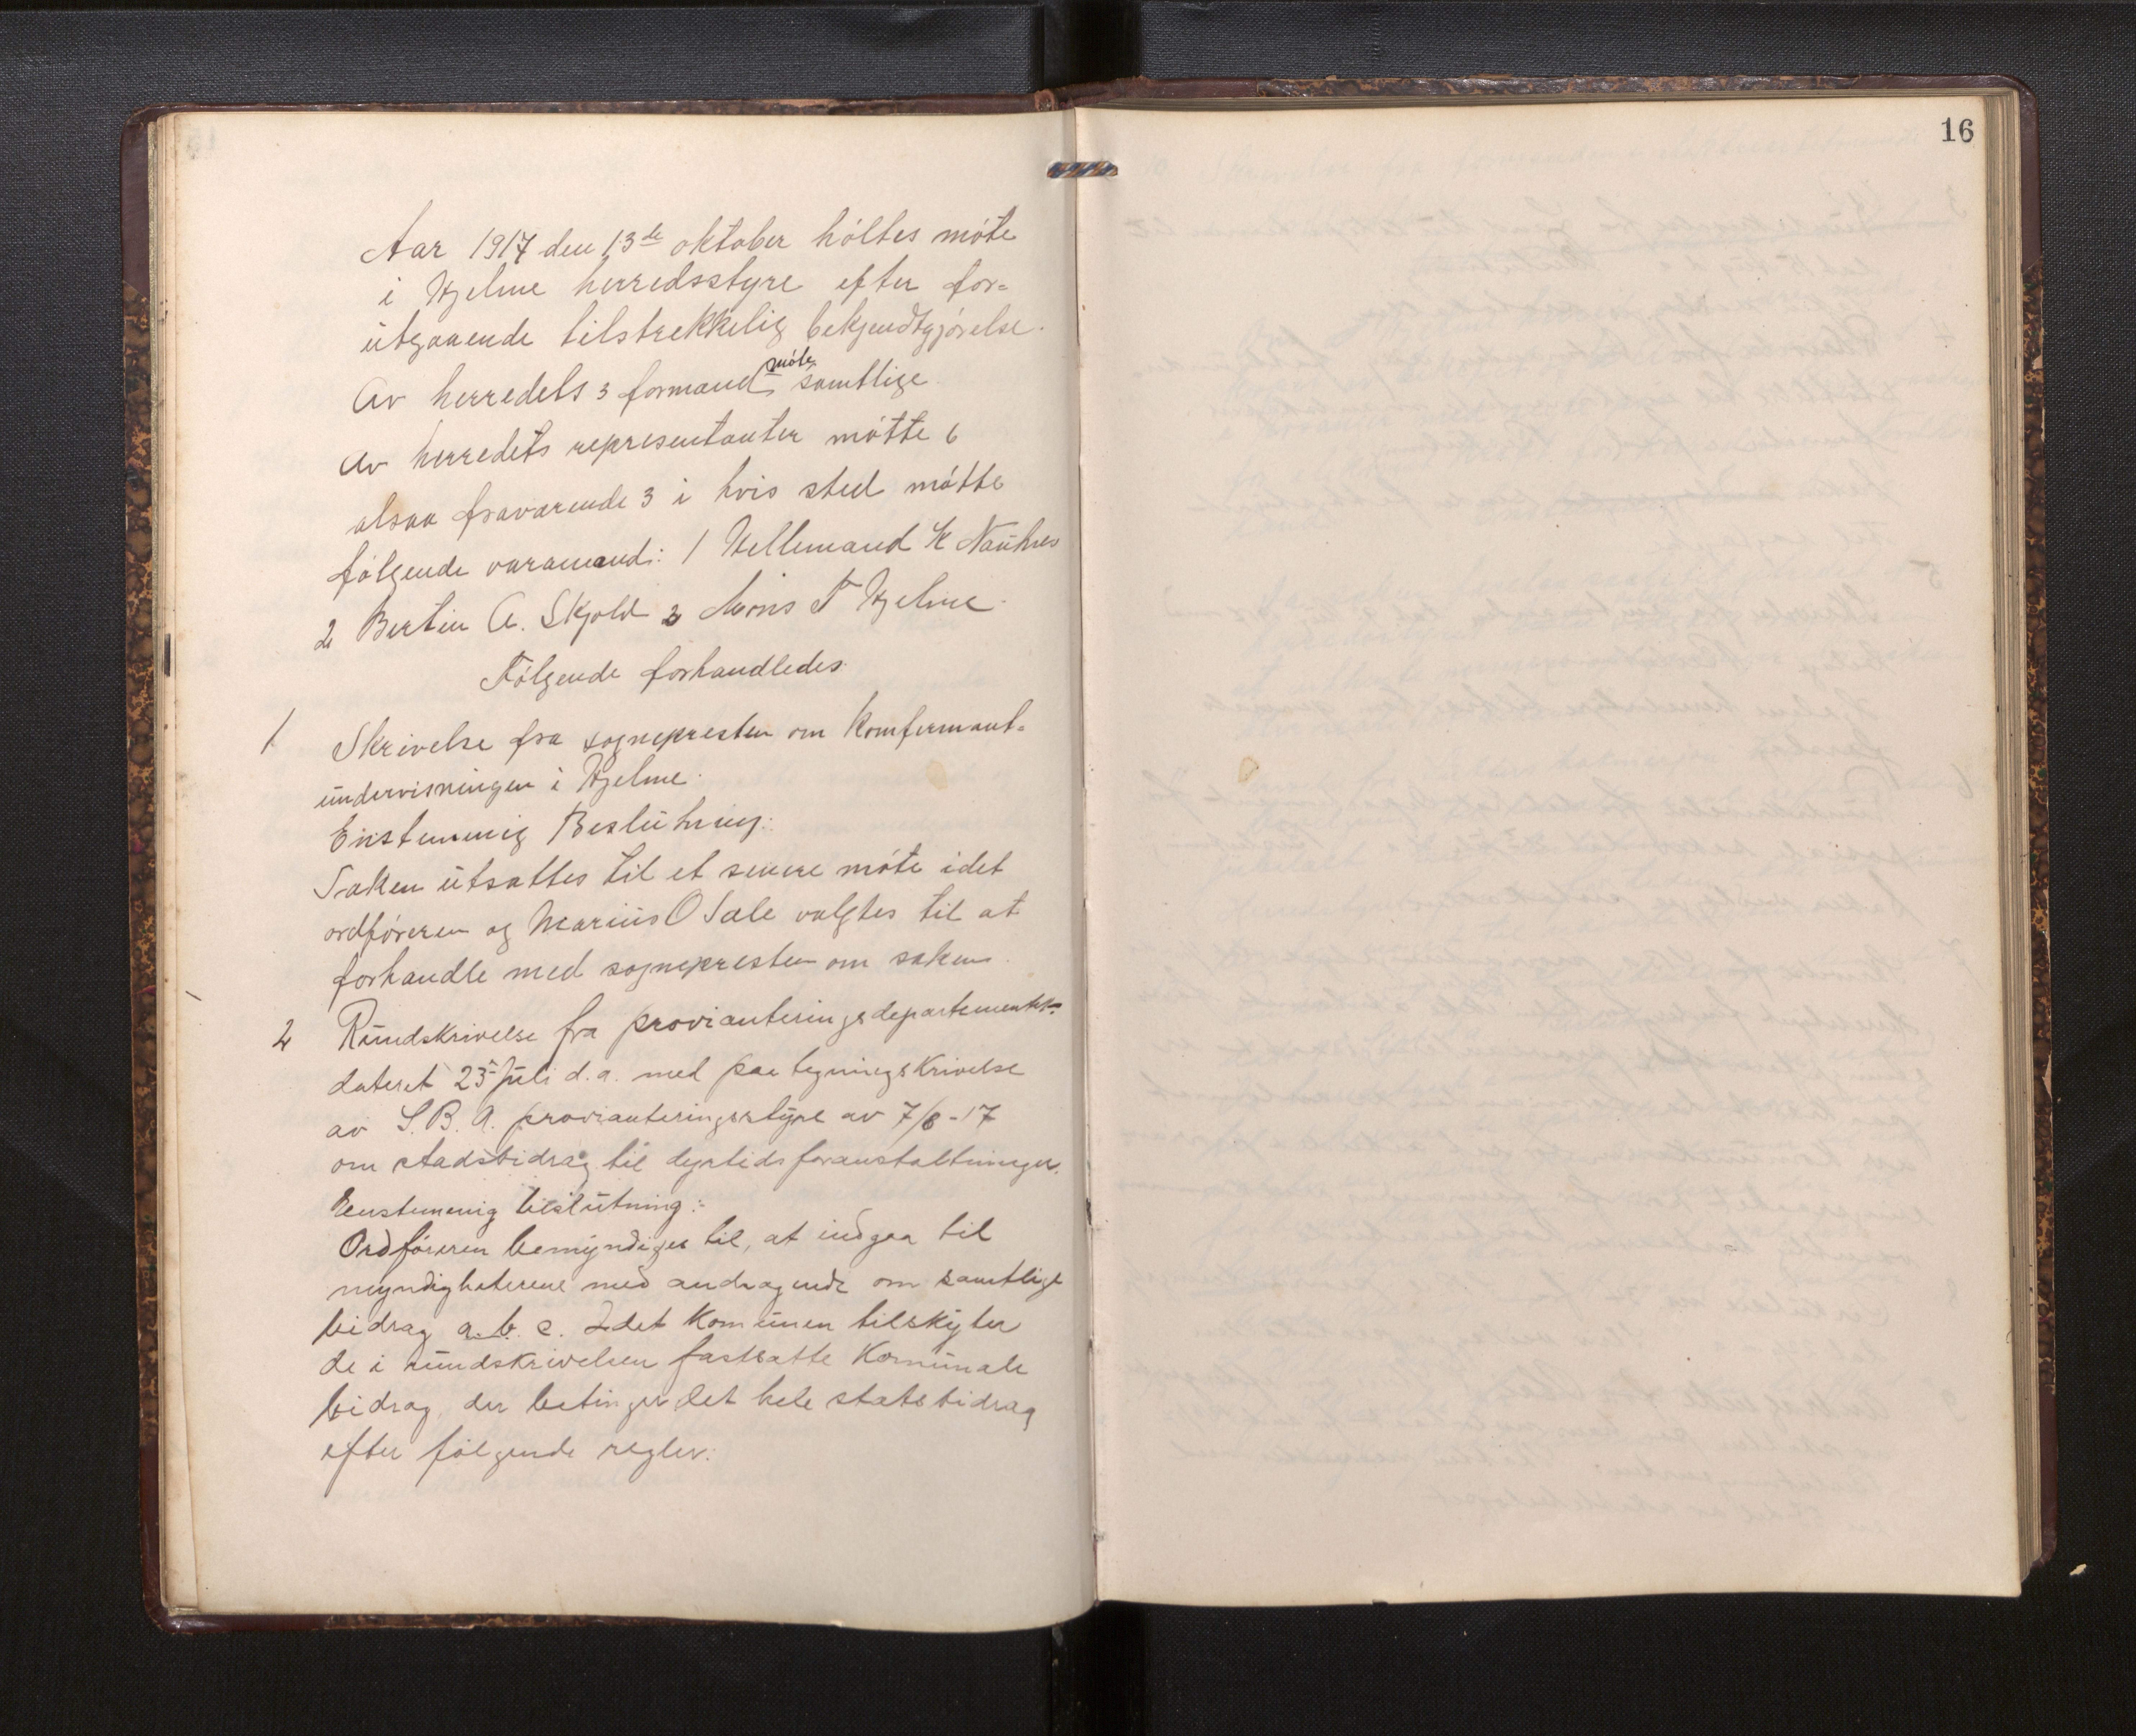 16
Aar 1917 den 13de oktober hóltes móte
i Hjelme herredsstyre efter for=
utgaaende tilstrekkelig bekjendtgjórelse.
Av herredets 3 formænd móte samtlige
Av herredets representanter mótte 6
alsaa fraværende 3 i hvis sted mótte
fólgende varamænd: 1 Hellemand H Nautnes
2 Bertin A. Skjold 3 Mons T Hjelme
Fólgende forhandledes
1 Skrivelse fra sognepresten om Komfermant=
undervisningen i Hjelme.
Enstemmig Beslutning:
Saken utsattes til et senere móte idet
ordfóreren og Marius O Sæle valgtes til at
forhandle med sognepresten om saken.
2 Rundskrivelse fra provianteringsdepartementet
dateret 25 juli d.a. med paategningskrivelse
av S.B.A. provianteringsstyre av 7/8-17
om stadsbidrag til dyrtidsforanstaltninger.
Enstemmig beslutning:
Ordfóreren bemyndiges til, at indgaa til
myndigheterene med andragende om samtlige
bidrag a. b. c. Idet Komunen tilskyter
de i rundskrivelsen fastsatte Komunale
bidrag, der betinger det hele statsbidrag
efter fólgende regler: